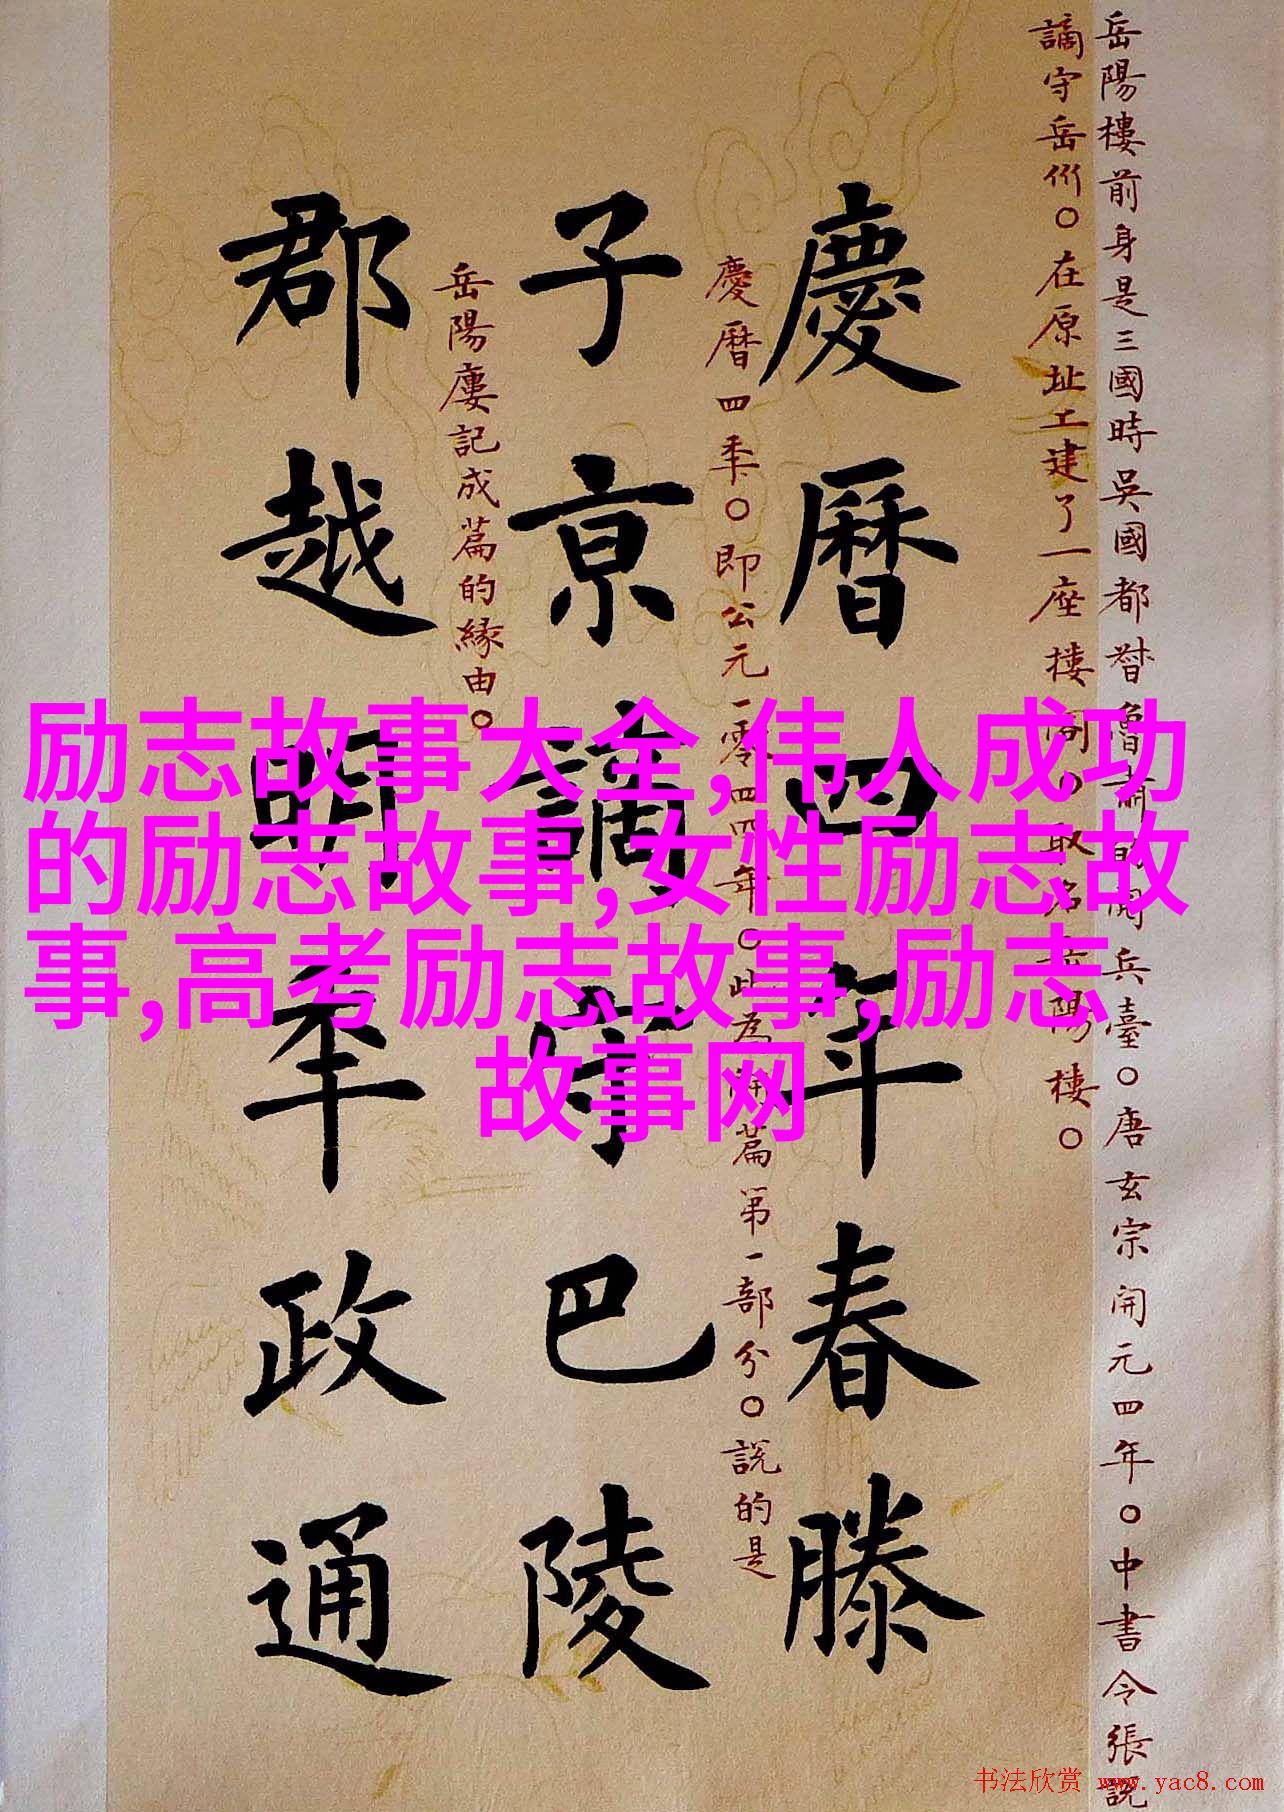 岳陽樓前身是三國時吳國都督魯肅的閱兵臺。唐玄宗開元四年。中書令張説
謫守岳州。在原址上建了一座樓閣。取名岳陽樓。
慶曆四年春滕
慶曆四年。即公元一零四四年。此為開篇第一部分。説的是
子京謫守巴陵
岳陽樓記成篇的緣由。
郡越明年政通
励志故事大全,伟人成功
的励志故事,女性励志故
事,高考励志故事,励志
故事网
书法欣赏 www.yac8.com